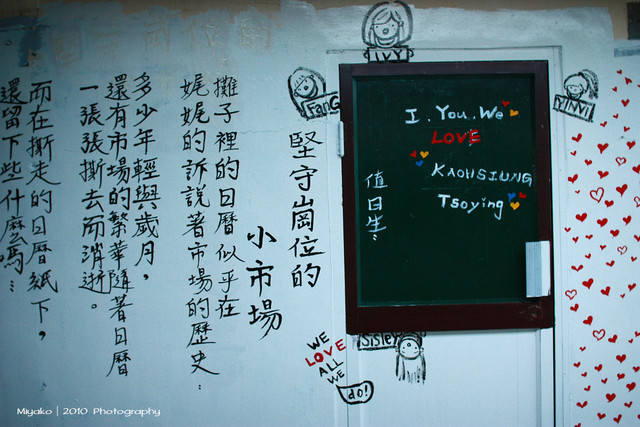 堅守崗位的
小市場
攤子裡的日曆似乎在
娓娓的訴說著市場的歷史：
多少年輕與歲月，
還有市場的繁華隨著日曆
一張張撕去而消逝。
而在撕走的日曆紙下，
還留下些什麼嗎：
IVY
FanG
YINVI
I. You. We
LOVE
KAOHSIUNG
Tsoying
值日生：
Sister
WE
LOVE
ALL
WE
do!
Miyako | 2010 Photography